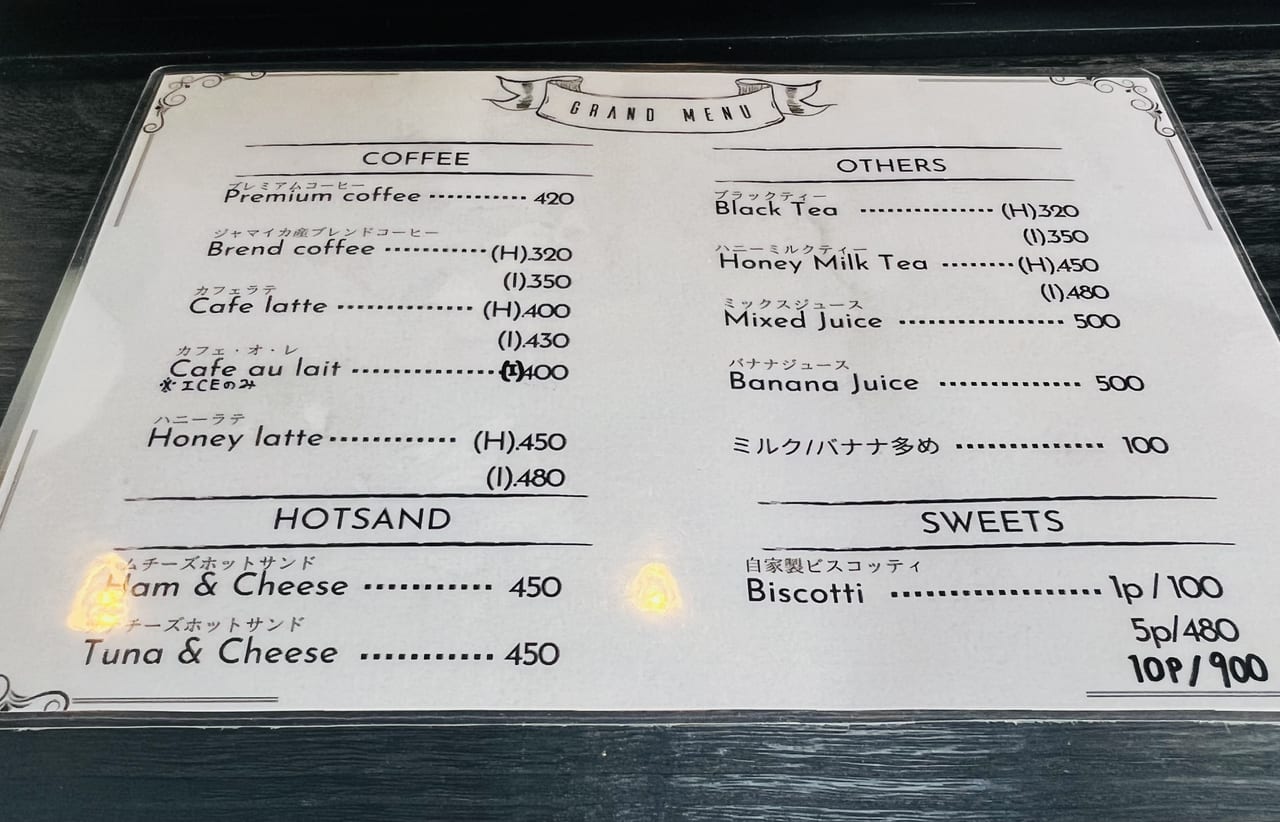 GRAND MENU
COFFEE
プレミアムコーヒー
Premium coffee ··········· 420
ジャマイカ産ブレンドコーヒー
Brend coffee ··········· (H).320
(I).350
カフェラテ
Cafe latte ··············· (H).400
(I).430
カフェ・オ・レ
Cafe au lait ················ (I)400
※ICEのみ
ハニーラテ
Honey latte ············ (H).450
(I).480
HOTSAND
ムチーズホットサンド
Ham & Cheese ··········· 450
チーズホットサンド
Tuna & Cheese ··········· 450
OTHERS
ブラックティー
Black Tea ················ (H)320
(I).350
ハニーミルクティー
Honey Milk Tea ········ (H).450
(I).480
ミックスジュース
Mixed Juice ·················· 500
バナナジュース
Banana Juice ··············· 500
ミルク/バナナ多め ··············· 100
SWEETS
自家製ビスコッティ
Biscotti ···················· 1p / 100
5p/480
10P/900